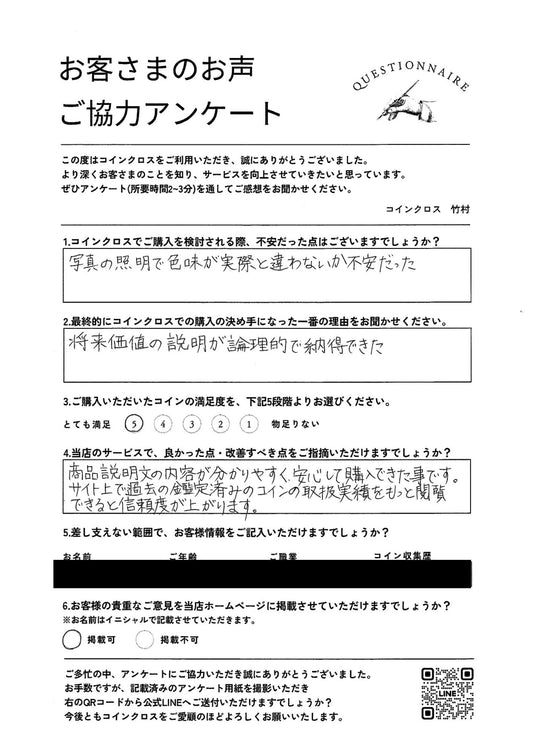 お客さまのお声
ご協力アンケート
QUESTIONNAIRE
この度はコインクロスをご利用いただき、誠にありがとうございました。
より深くお客さまのことを知り、サービスを向上させていきたいと思っています。
ぜひアンケート(所要時間2~3分)を通してご感想をお聞かせください。
コインクロス 竹村
1.コインクロスでご購入を検討される際、不安だった点はございますでしょうか？
写真の照明で色味が実際と違わないか不安だった
2.最終的にコインクロスでの購入の決め手になった一番の理由をお聞かせください。
将来価値の説明が論理的で納得できた
3.ご購入いただいたコインの満足度を、下記5段階よりお選びください。
とても満足 5 4 3 2 1 物足りない
4.当店のサービスで、良かった点・改善すべき点をご指摘いただけますでしょうか？
商品説明文の内容が分かりやすく、安心して購入できた事です。
サイト上で過去の鑑定済みのコインの取扱実績をもっと閲覧
できると信頼度が上がります。
5.差し支えない範囲で、お客様情報をご記入いただけますでしょうか？
お名前 ご年齢 ご職業 コイン収集歴
6.お客様の貴重なご意見を当店ホームページに掲載させていただけますでしょうか？
※お名前はイニシャルで記載させていただきます。
掲載可 掲載不可
ご多忙の中、アンケートにご協力いただき誠にありがとうございました。
お手数ですが、記載済みのアンケート用紙を撮影いただき
右のQRコードから公式LINEへご送付いただけますでしょうか？
今後ともコインクロスをご愛顧のほどよろしくお願いいたします。
LINE